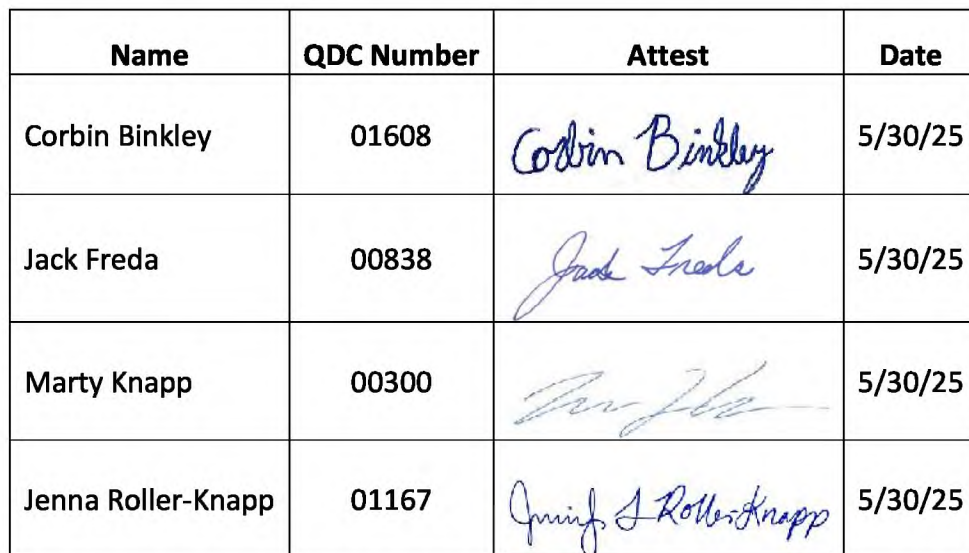 Name QDC Number Attest Date
Corbin Binkley 01608 Corbin Binkley 5/30/25
Jack Freda 00838 Jack Freda 5/30/25
Marty Knapp 00300 5/30/25
Jenna Roller-Knapp 01167 Roller-Knapp 5/30/25